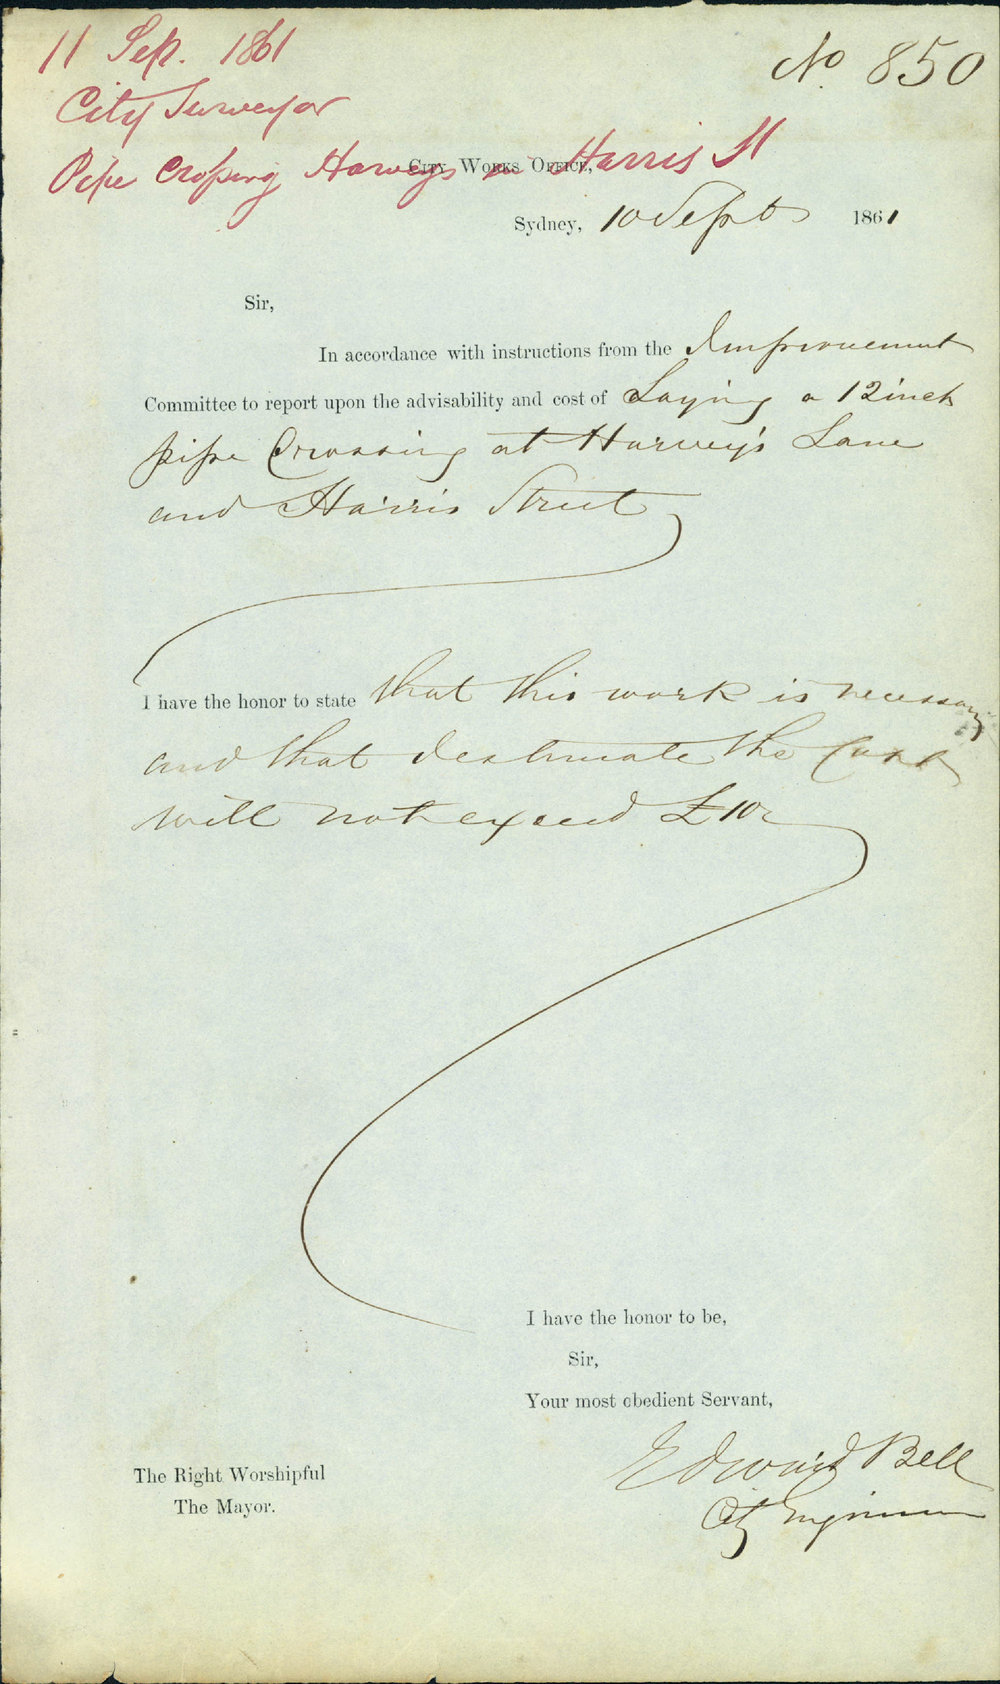 11 Sep. 1861
City Surveyor
Pipe Crossing Harveys in Harris St
No. 850
City Works Office,
Sydney, 10 Sept 1861
Sir,
In accordance with instructions from the Improvement
Committee to report upon the advisability and cost of Laying a 12 inch
pipe Crossing at Harvey's Lane
and Harris Street
I have the honor to state that this work is necessary
and that I estimate the Cost
will not exceed £10
I have the honor to be,
Sir,
Your most obedient Servant,
Edward Bell
City Engineer
The Right Worshipful
The Mayor.